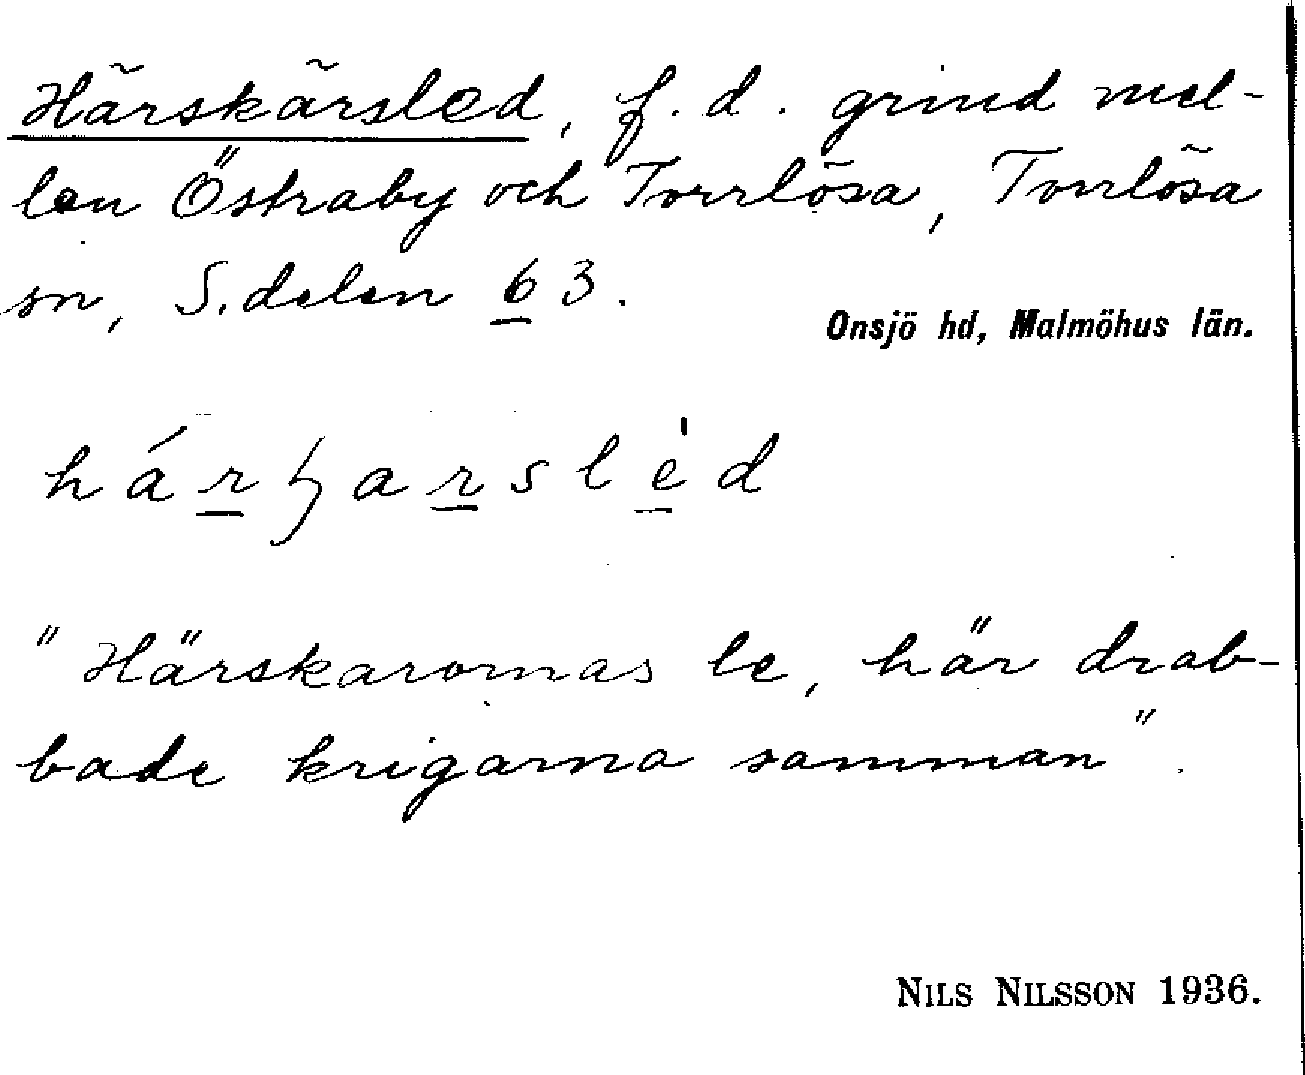 Härskärsled, f. d. grind mel-
len Östraby och Torrlösa, Torrlösa
sn, S. delen 63.
Onsjö hd, Malmöhus län.
"Härskarornas le, här drab-
bade krigarna samman".
NILS NILSSON 1936.